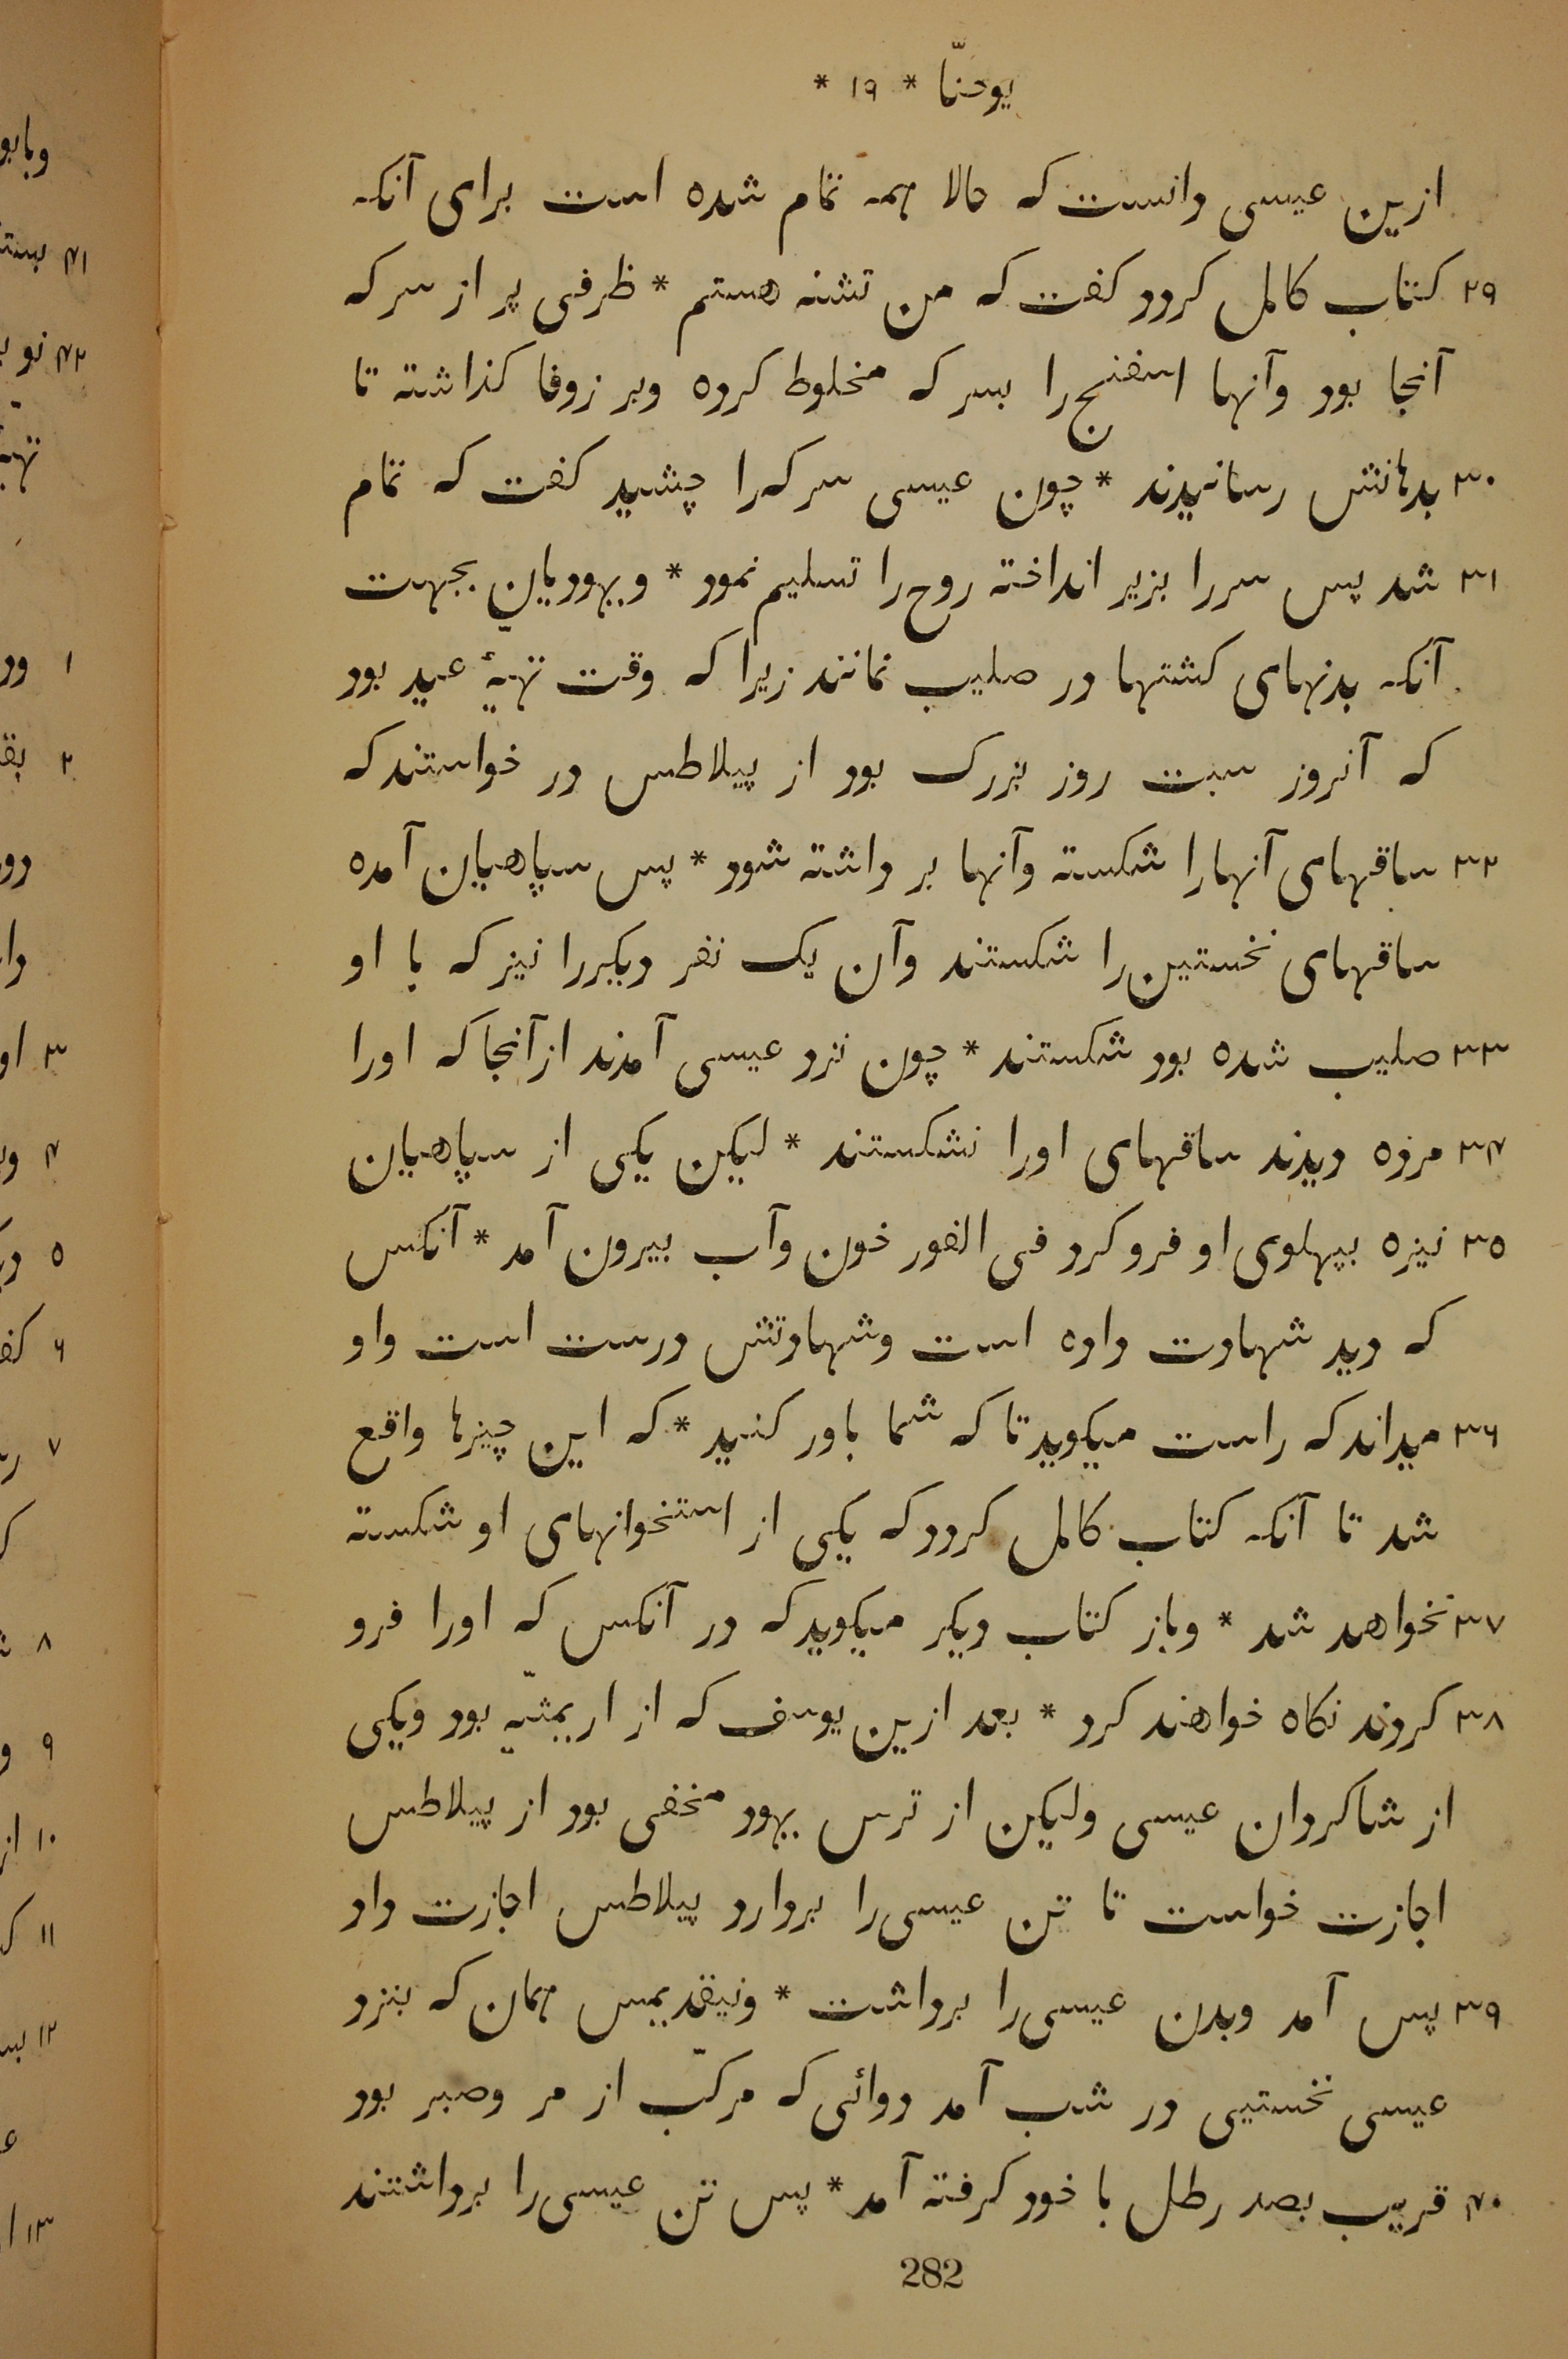 یوحنّا * ۱۹ *
ازین عیسی دانست که حالا همه تمام شده است برای آنکه
۲۹ کتاب کامل کردد کفت که من تشنه هستم * ظرفی پر از سرکه
آنجا بود وآنها اسفنج را بسرکه مخلوط کرده وبر زوفا کذاشته تا
۳۰ بدهانش رسانیدند * چون عیسی سرکه را چشید کفت که تمام
۳۱ شد پس سررا بزیر انداخته روح را تسلیم نمود * ویهودیان بجهت
آنکه بدنهای کشتها در صلیب نمانند زیرا که وقت تهیهٔ عید بود
که آنروز سبت روز بزرک بود از پیلاطس در خواستند که
۳۲ ساقهای آنهارا شکسته وآنها بر داشته شود * پس سپاهیان آمده
ساقهای نخستین را شکستند وآن یک نفر دیکررا نیز که با او
۳۳ صلیب شده بود شکستند * چون نزد عیسی آمدند ازآنجا که اورا
۳۴ مرده دیدند ساقهای اورا نشکستند * لیکن یکی از سپاهیان
۳۵ نیزه بپهلوی او فرو کرد فی الفور خون وآب بیرون آمد * آنکس
که دید شهادت داده است وشهادتش درست است واو
۳۶ میداند که راست میکوید تا که شما باور کنید * که این چیزها واقع
شد تا آنکه کتاب کامل کردد که یکی از استخوانهای او شکسته
۳۷ نخواهد شد * وباز کتاب دیکر میکوید که در آنکس که اورا فرو
۳۸ کردند نکاه خواهند کرد * بعد ازین یوسف که از اریمثیّه بود ویکی
از شاکردان عیسی ولیکن از ترس یهود مخفی بود از پیلاطس
اجازت خواست تا تن عیسی را بردارد پیلاطس اجازت داد
۳۹ پس آمد وبدن عیسی را برداشت * ونیقدیمس همان که بنزد
عیسی نخستیی در شب آمد دوائی که مرکّب از مر وصبر بود
۴۰ قریب بصد رطل با خود کرفته آمد * پس تن عیسی را برداشتند
282